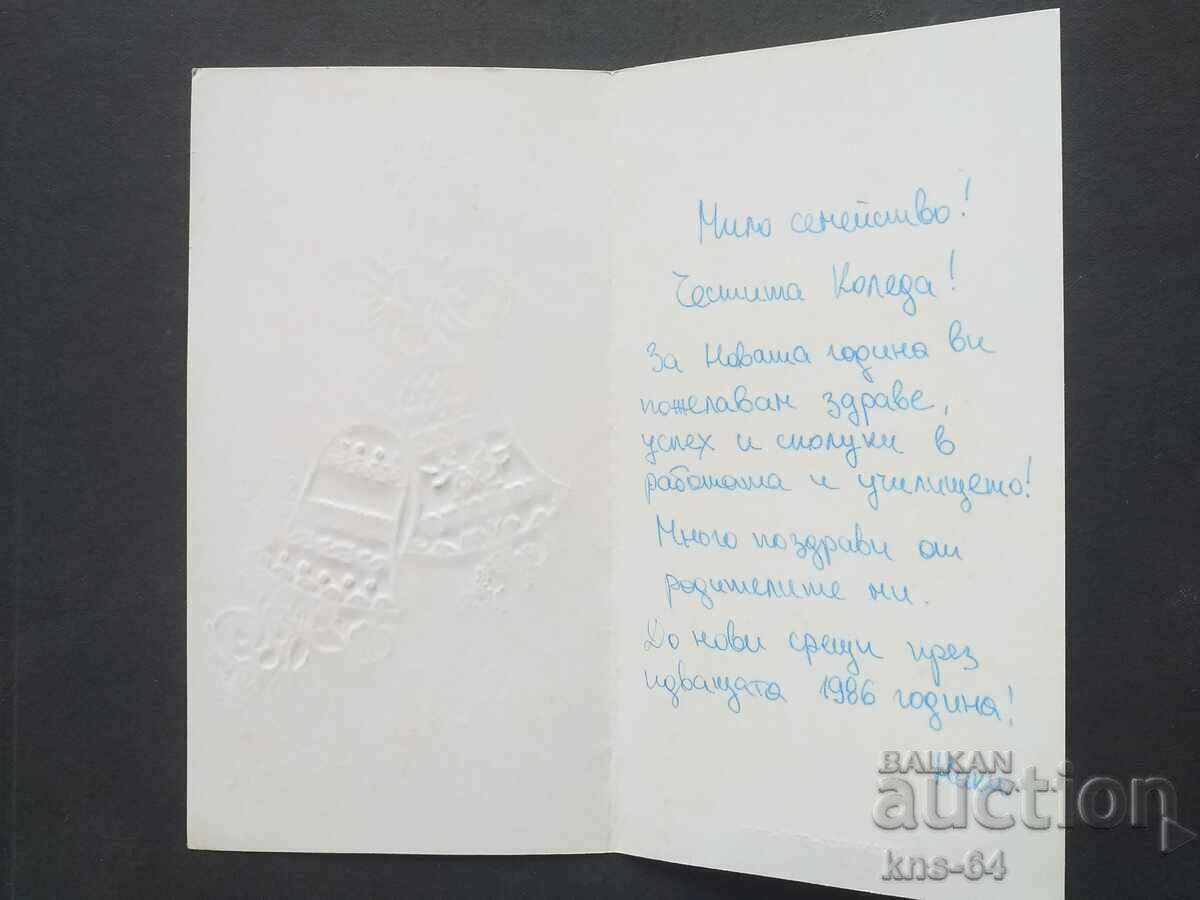 Мило семейство!
Честита Коледа!
За Новата година ви
пожелавам здраве,
успех и сполуки в
работата и училището!
Много поздрави от
родителите ни.
До нови срещи през
идващата 1986 година!
BALKAN
auction
kns-64